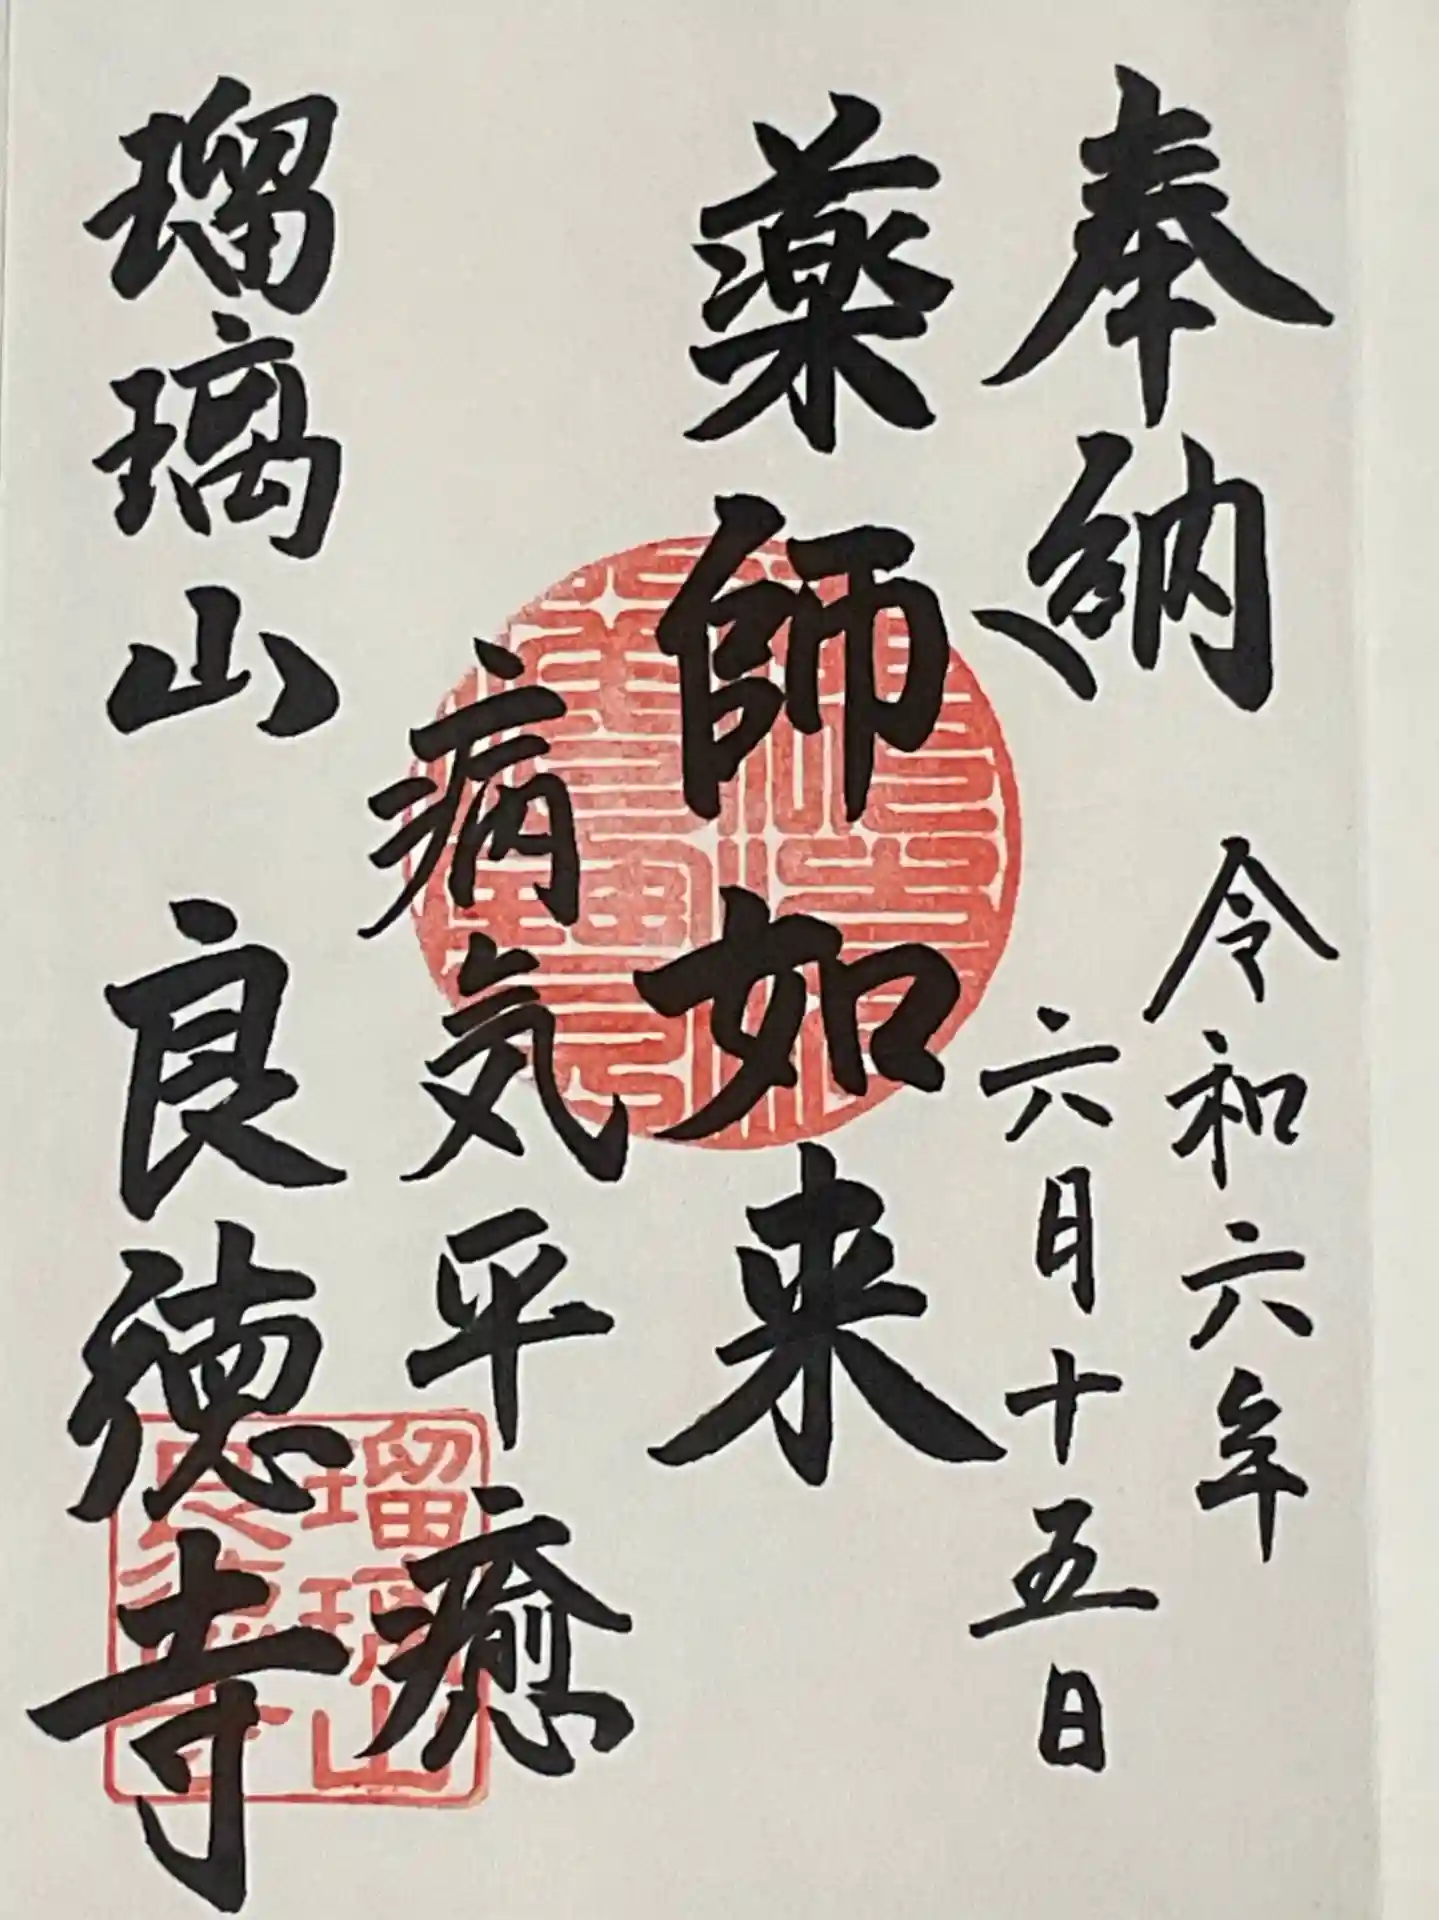 奉納
令和六年
六月十五日
薬師如来
病気平癒
瑠璃山 良徳寺
瑠璃山
良徳寺